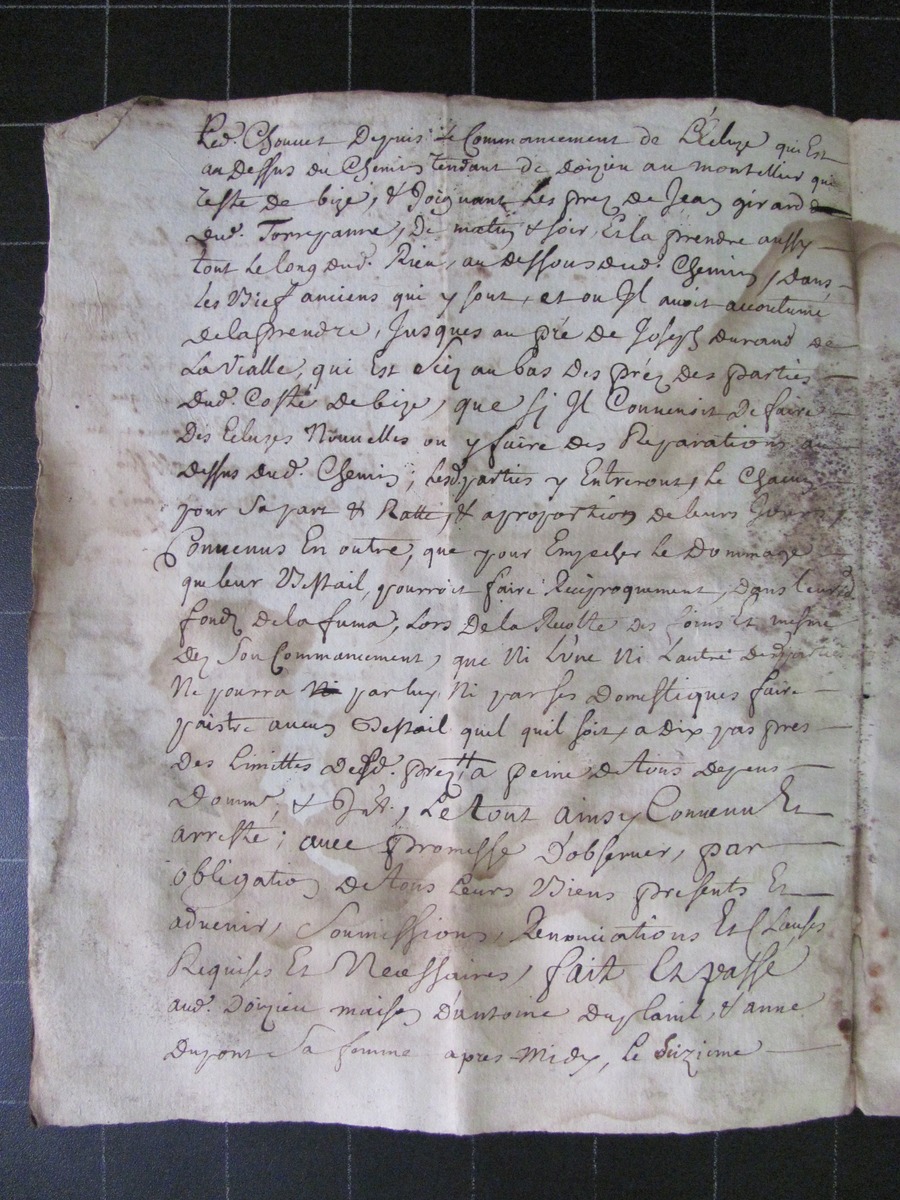 Led. Chouvet Depuis le Commancement de L'Ecluze qui Est
au Dessus du Chemin tendant de doizieu au montellier qui
reste de bize, & Joignant les prez de Jean girard
dud. Torrepanne, De matin & soir, Et la prendre aussy
tout le long dud. Rieu, au dessous dud. Chemin, dans
les Bief anciens qui y sont, et ou Il avoit accoutumé
de la prendre, Jusques au pré de Joseph durand de
La Vialle, qui Est au bas des préz des parties
dud. Costé de bize, que sy Il Convenoit de faire
Des Ecluzes Nouvelles ou y faire des Reparations au
dessus dud. Chemin, lesd. parties y Entreront, le Chacun
pour Sa part & Ratte, & a proportion de leurs
Convenus En outre, que pour Empecher le Dommage
que leur Bestail, pourroit faire Reciproquement, dans leursd.
fondz de la fuma, Lors De la Recolte des foins Et mesme
dez Son Commancement, que Ni L'une Ni Lautre desd. parties
Ne pourra par luy, Ni par ses Domestiques faire
paistre aucun Bestail quel quil soit, a dix pas pres
des Limittes desd. prez, a peine de tous depens
Domm. & Int., Le tout ainsy Convenu Et
arresté; avec promesse D'observer, par
obligation de tous leurs Biens presents Et
advenir, Soumissions, Renonciations Et Clauses
Requises Et Necessaires, fait Et passé
aud. Doizieu maison d'antoine duplaint, & anne
dupont Sa femme apres Midy, le